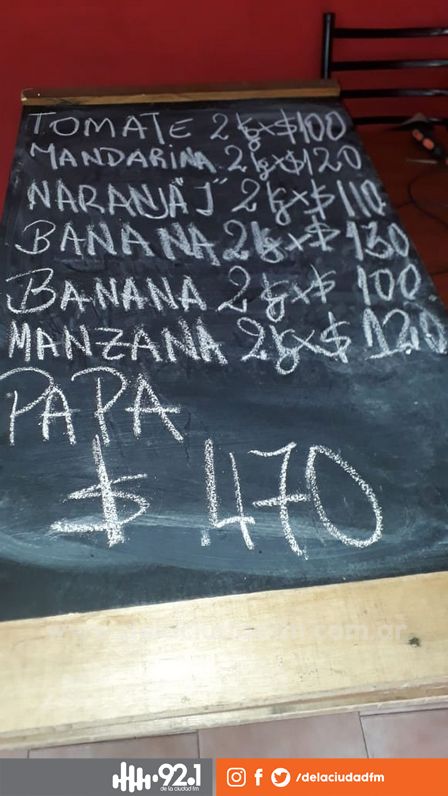 TOMATE 2kg x $100
MANDARINA 2kg x $120
NARANJA "J" 2kg x $110
BANANA 2kg x $ 130
BANANA 2kg x $ 100
MANZANA 2kg x $ 120
PAPA
$ 470
.com.ar
92.1
de la ciudad fm
/delaciudadfm